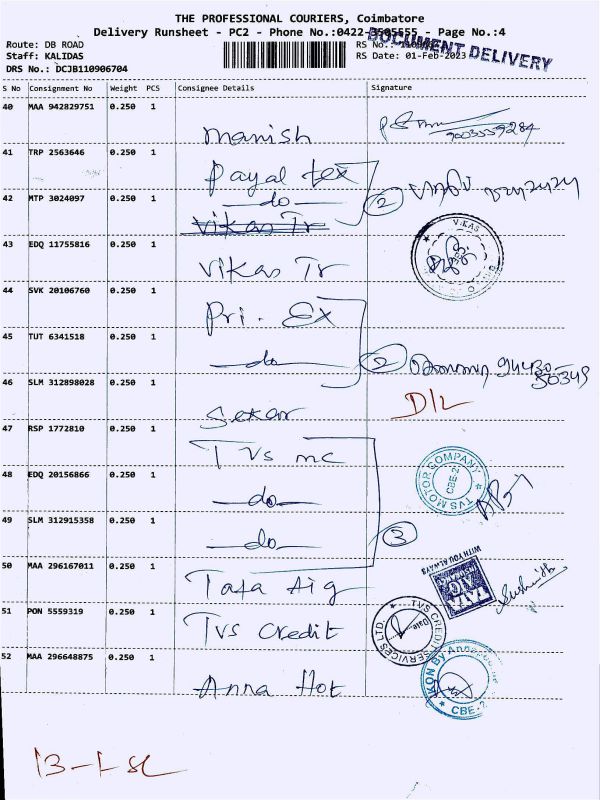 THE PROFESSIONAL COURIERS, Coimbatore
Delivery Runsheet - PC2 - Phone No.:0422-3505555 - Page No.:4
DOCUMENT DELIVERY
Route: DB ROAD
RS No.:
Staff: KALIDAS
RS Date: 01-Feb-2023
DRS No.: DCJB110906704
S No Consignment No Weight PCS Consignee Details Signature
40 MAA 942829751 0.250 1 manish
9003339284
41 TRP 2563646 0.250 1 payal tex
42 MTP 3024097 0.250 1 do
2
vikas Tr
43 EDQ 11755816 0.250 1 vikas Tr
VIKAS
44 SVK 20106760 0.250 1 Pri. Ex
45 TUT 6341518 0.250 1 do
2 94430
50349
46 SLM 312898028 0.250 1 Sekar
D/L
47 RSP 1772810 0.250 1 TVS mc
TVS MOTOR COMPANY
CBE-2
48 EDQ 20156866 0.250 1 do
49 SLM 312915358 0.250 1 do
3
50 MAA 296167011 0.250 1 Tata Aig
WITH YOU ALWAYS
TATA AIG
51 PON 5559319 0.250 1 TVS Credit
TVS CREDIT SERVICES LTD.
Date
52 MAA 296648875 0.250 1 Anna Hot
IKON By
CBE-2
13-1-SL